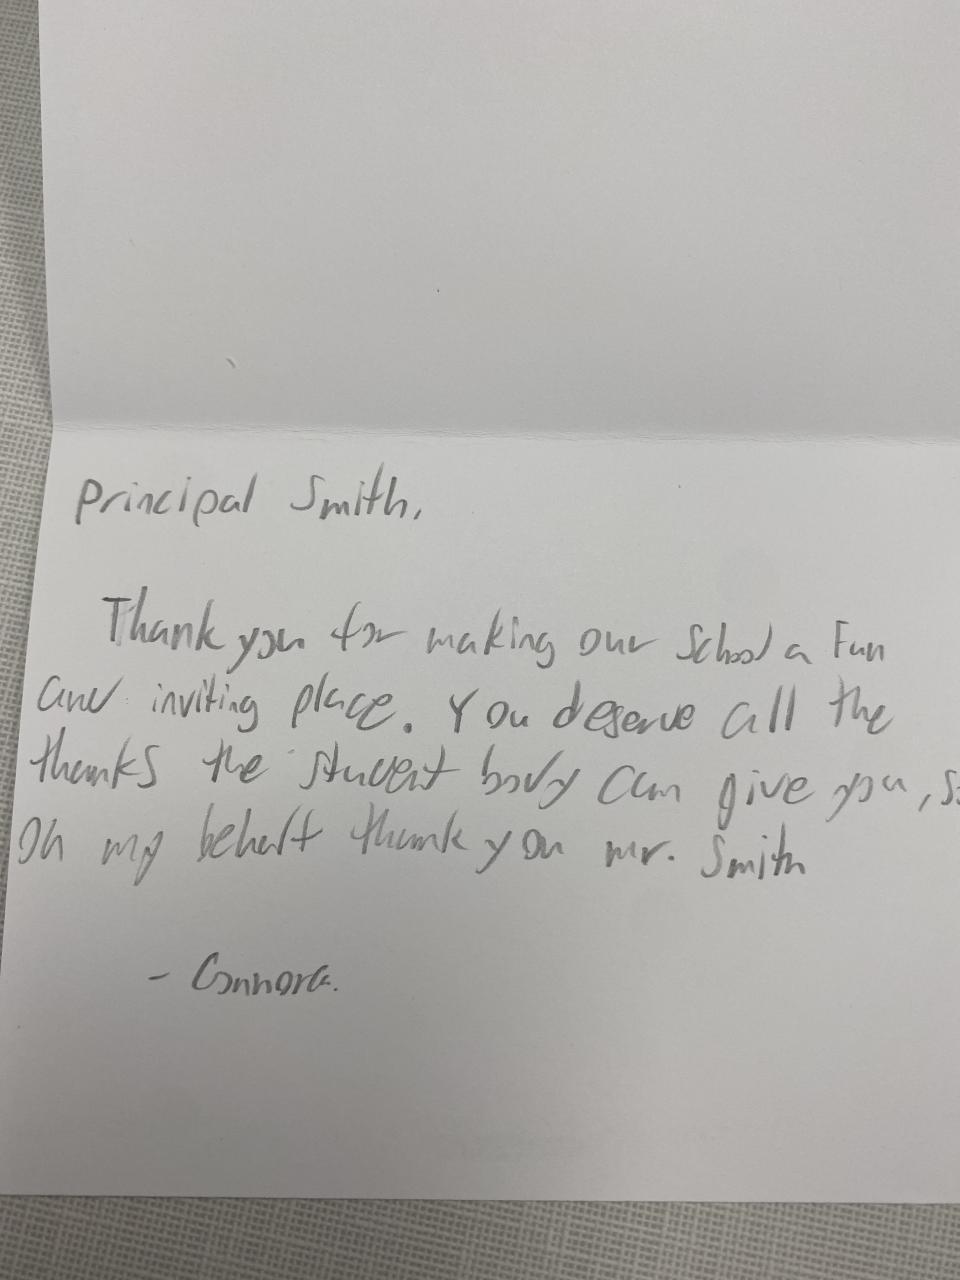 Principal Smith,
Thank you for making our school a Fun
and inviting place. You deserve all the
thanks the student body can give you,
On my behalf thank you mr. Smith
- Connor G.